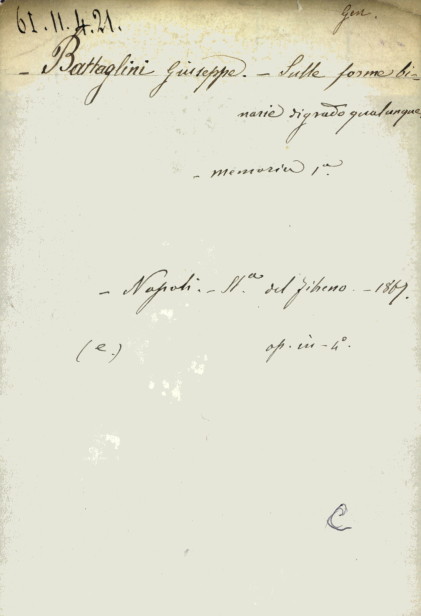 61.11.4.21.
Gen.
- Battaglini Giuseppe. - Sulle forme bi-
narie di grado qualunque.
- memoria 1.a
- Napoli. - St.a del Fibreno - 1867.
(e.) op. in - 4º.
C